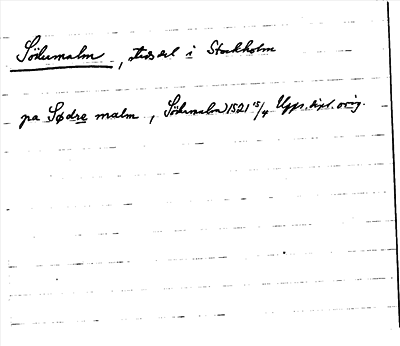 Södermalm, stadsdel i Stockholm
pa Sødre malm, Södermalm 1521 15/4 Upps. dipl. orig.